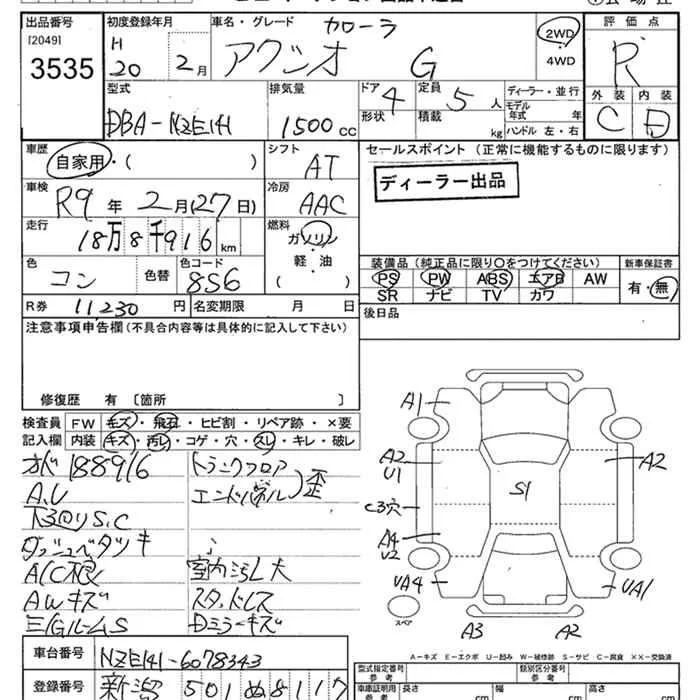 出品番号 初度登録年月 車名・グレード カローラ 評価点
[2049] H 2WD R
3535 20 2月 アクシオ G 4WD
型式 排気量 ドア 4 定員 5人 ディーラー・並行 外装 内装
DBA-NZE141 1500cc 形状 積載 kg モデル年式 年 C D
ハンドル 左・右
車歴 シフト セールスポイント(正常に機能するものに限ります)
自家用・( ) AT
ディーラー出品
車検 冷房
R9年 2月(27日) AAC
走行 燃料
18万8千916km ガソリン
軽・油
( )
色 色替 色コード 装備品(純正品に限り〇をつけてください) 新車保証書
コン 8S6 PS PW ABS エアB AW 有・無
SR ナビ TV カワ
R券 11,230円 名変期限 月 日
注意事項申告欄(不具合内容等は具体的に記入して下さい) 後日品
修復歴 有 〔箇所 〕
検査員 FW キズ・飛石・ヒビ割・リペア跡・×要
記入欄 内装 キズ・汚レ・コゲ・穴・スレ・キレ・破レ
188916 トランクフロア
A,U エンドパネル)歪
下回りS,C
ダッシュベタツキ
室内汚レ大
AWキズ スタッドレス
E/GルームS Dミラーキズ
A1
A2
U1
A2
S1
C3穴
A4
U2
UA4
UA1
スペア
A3
A2
A=キズ E=エクボ U=凹み W=補修跡 S=サビ C=腐食 XX=交換済
車台番号 NZE141-6078343
登録番号 新潟 501 ぬ 8117
型式指定番号 参考 類別区分番号 参考
車庫証明用 参考 長さ cm 幅 cm 高さ cm